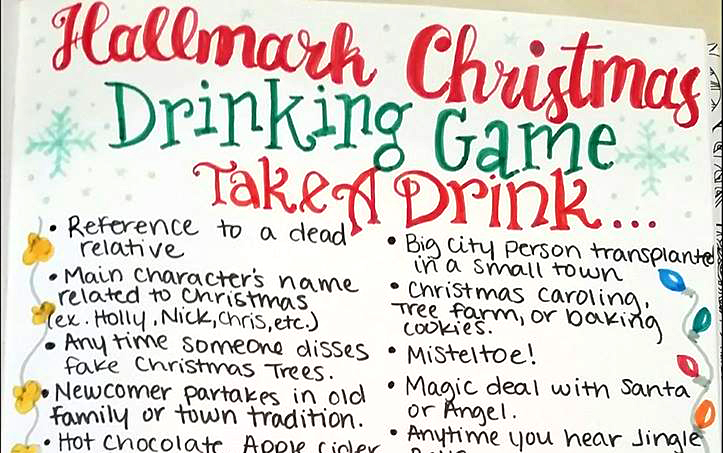 Hallmark Christmas
Drinking Game
Take A Drink...
• Reference to a dead
relative
• Main Character's name
related to Christmas
(ex. Holly, Nick, Chris, etc.)
• Any time someone disses
fake Christmas Trees.
• Newcomer partakes in old
family or town tradition.
• Hot Chocolate, Apple cider
• Big City Person transplanted
in a small town
• Christmas caroling,
Tree farm, or baking
cookies.
• Misteltoe!
• Magic deal with Santa
or Angel.
• Anytime you hear Jingle